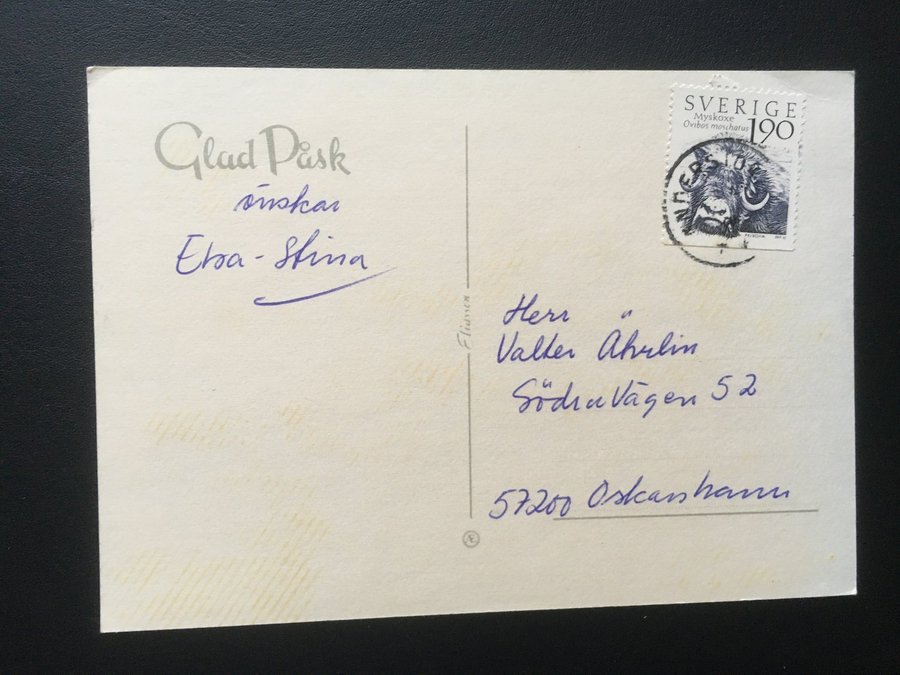 Glad Påsk
önskar
Ebba-Stina
SVERIGE
Myskoxe
Ovibos moschatus
190
Herr
Valter Åhrlin
Södra Vägen 52
57200 Oskarshamn
Æ